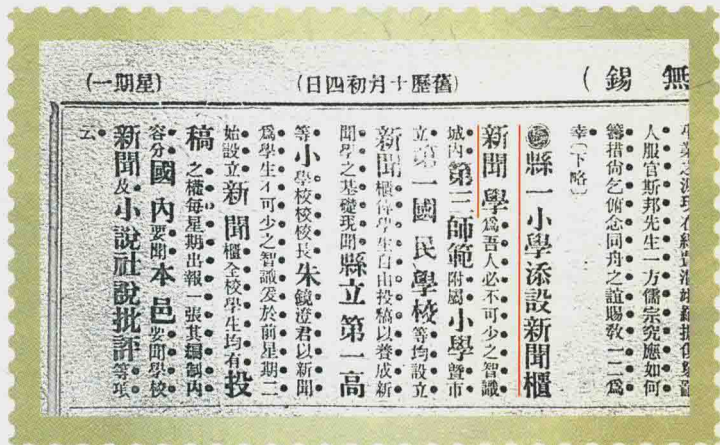 無錫
(舊歷十月初四日)
(星期一)
人服官斯邦先生一方儒宗究應如何
籌措尚乞俯念同舟之誼賜敎一二爲
幸(下略)
縣一小學添設新聞櫃
新聞學爲吾人必不可少之智識
城內第三師範附屬小學曁市
立第一國民學校等均設立
新聞櫃俾學生自由投稿以養成新
聞學之基礎現聞縣立第一高
等小學校校長朱鏡澄君以新聞
爲學生不可少之智識爰於前星期二
始設立新聞櫃全校學生均有投
稿之權每星期出報一張其編制內
容分國內要聞本邑要聞學校
新聞及小說社說批評等項
云